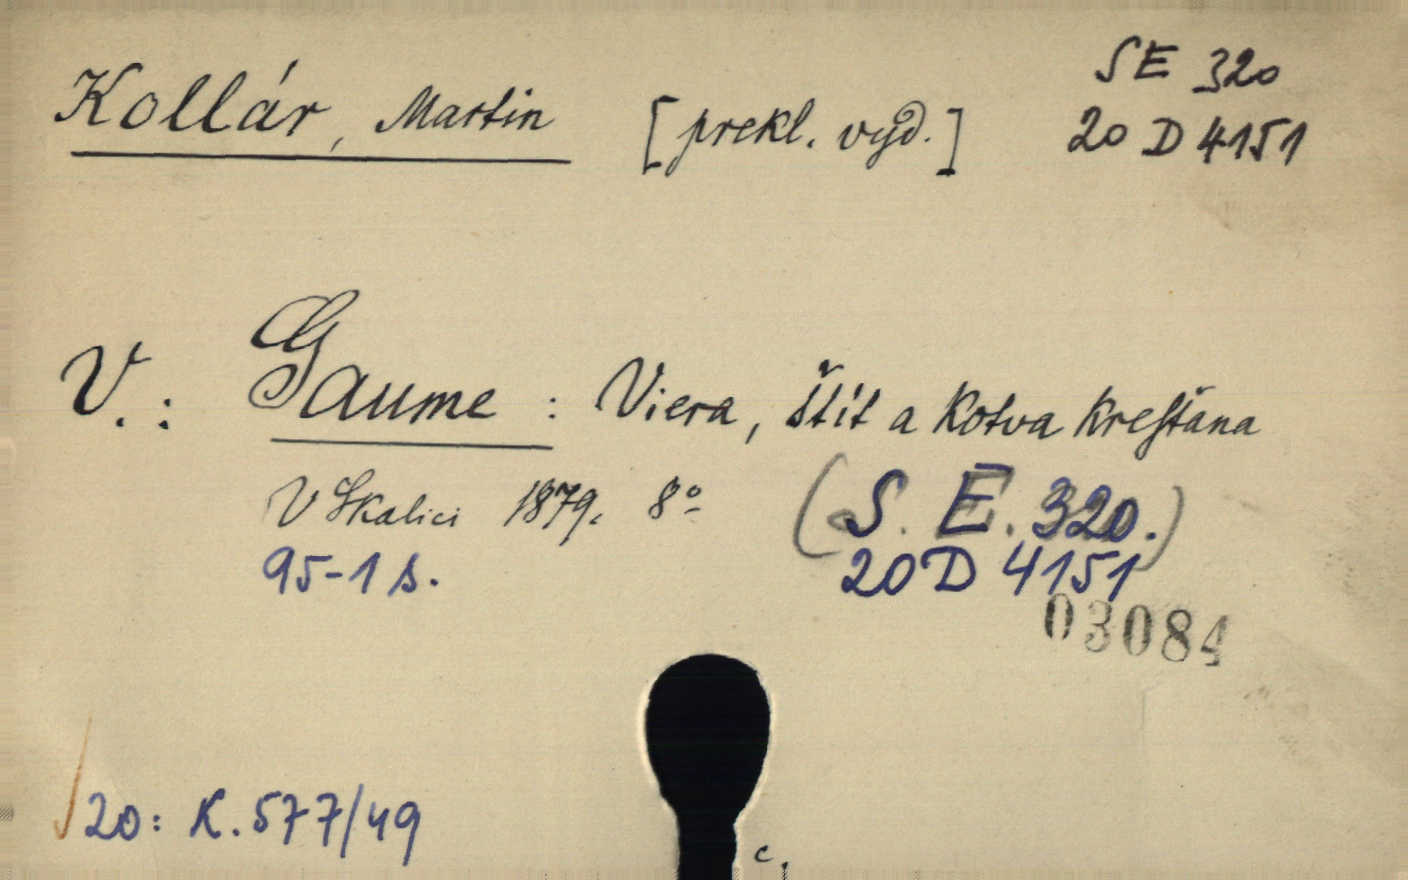 SE 320
Kollár, Martin [prekl. vyd.] 20 D 4151
V.: Gaume: Viera, štít a kotva kresťana
V Skalici 1879. 8° (S. E. 320.)
95-1 s. 20 D 4151
03084
20: K. 577/49
c.